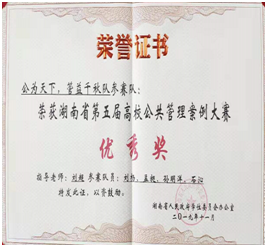 荣誉证书
公为天下，管益千秋队参赛队：
荣获湖南省第五届高校公共管理案例大赛
优秀奖
指导老师：刘 参赛队员：刘 、孟 、孙明洋、石
特发此证，以资鼓励。
湖南省人民政府学位委员会办公室
二〇一九年十一月